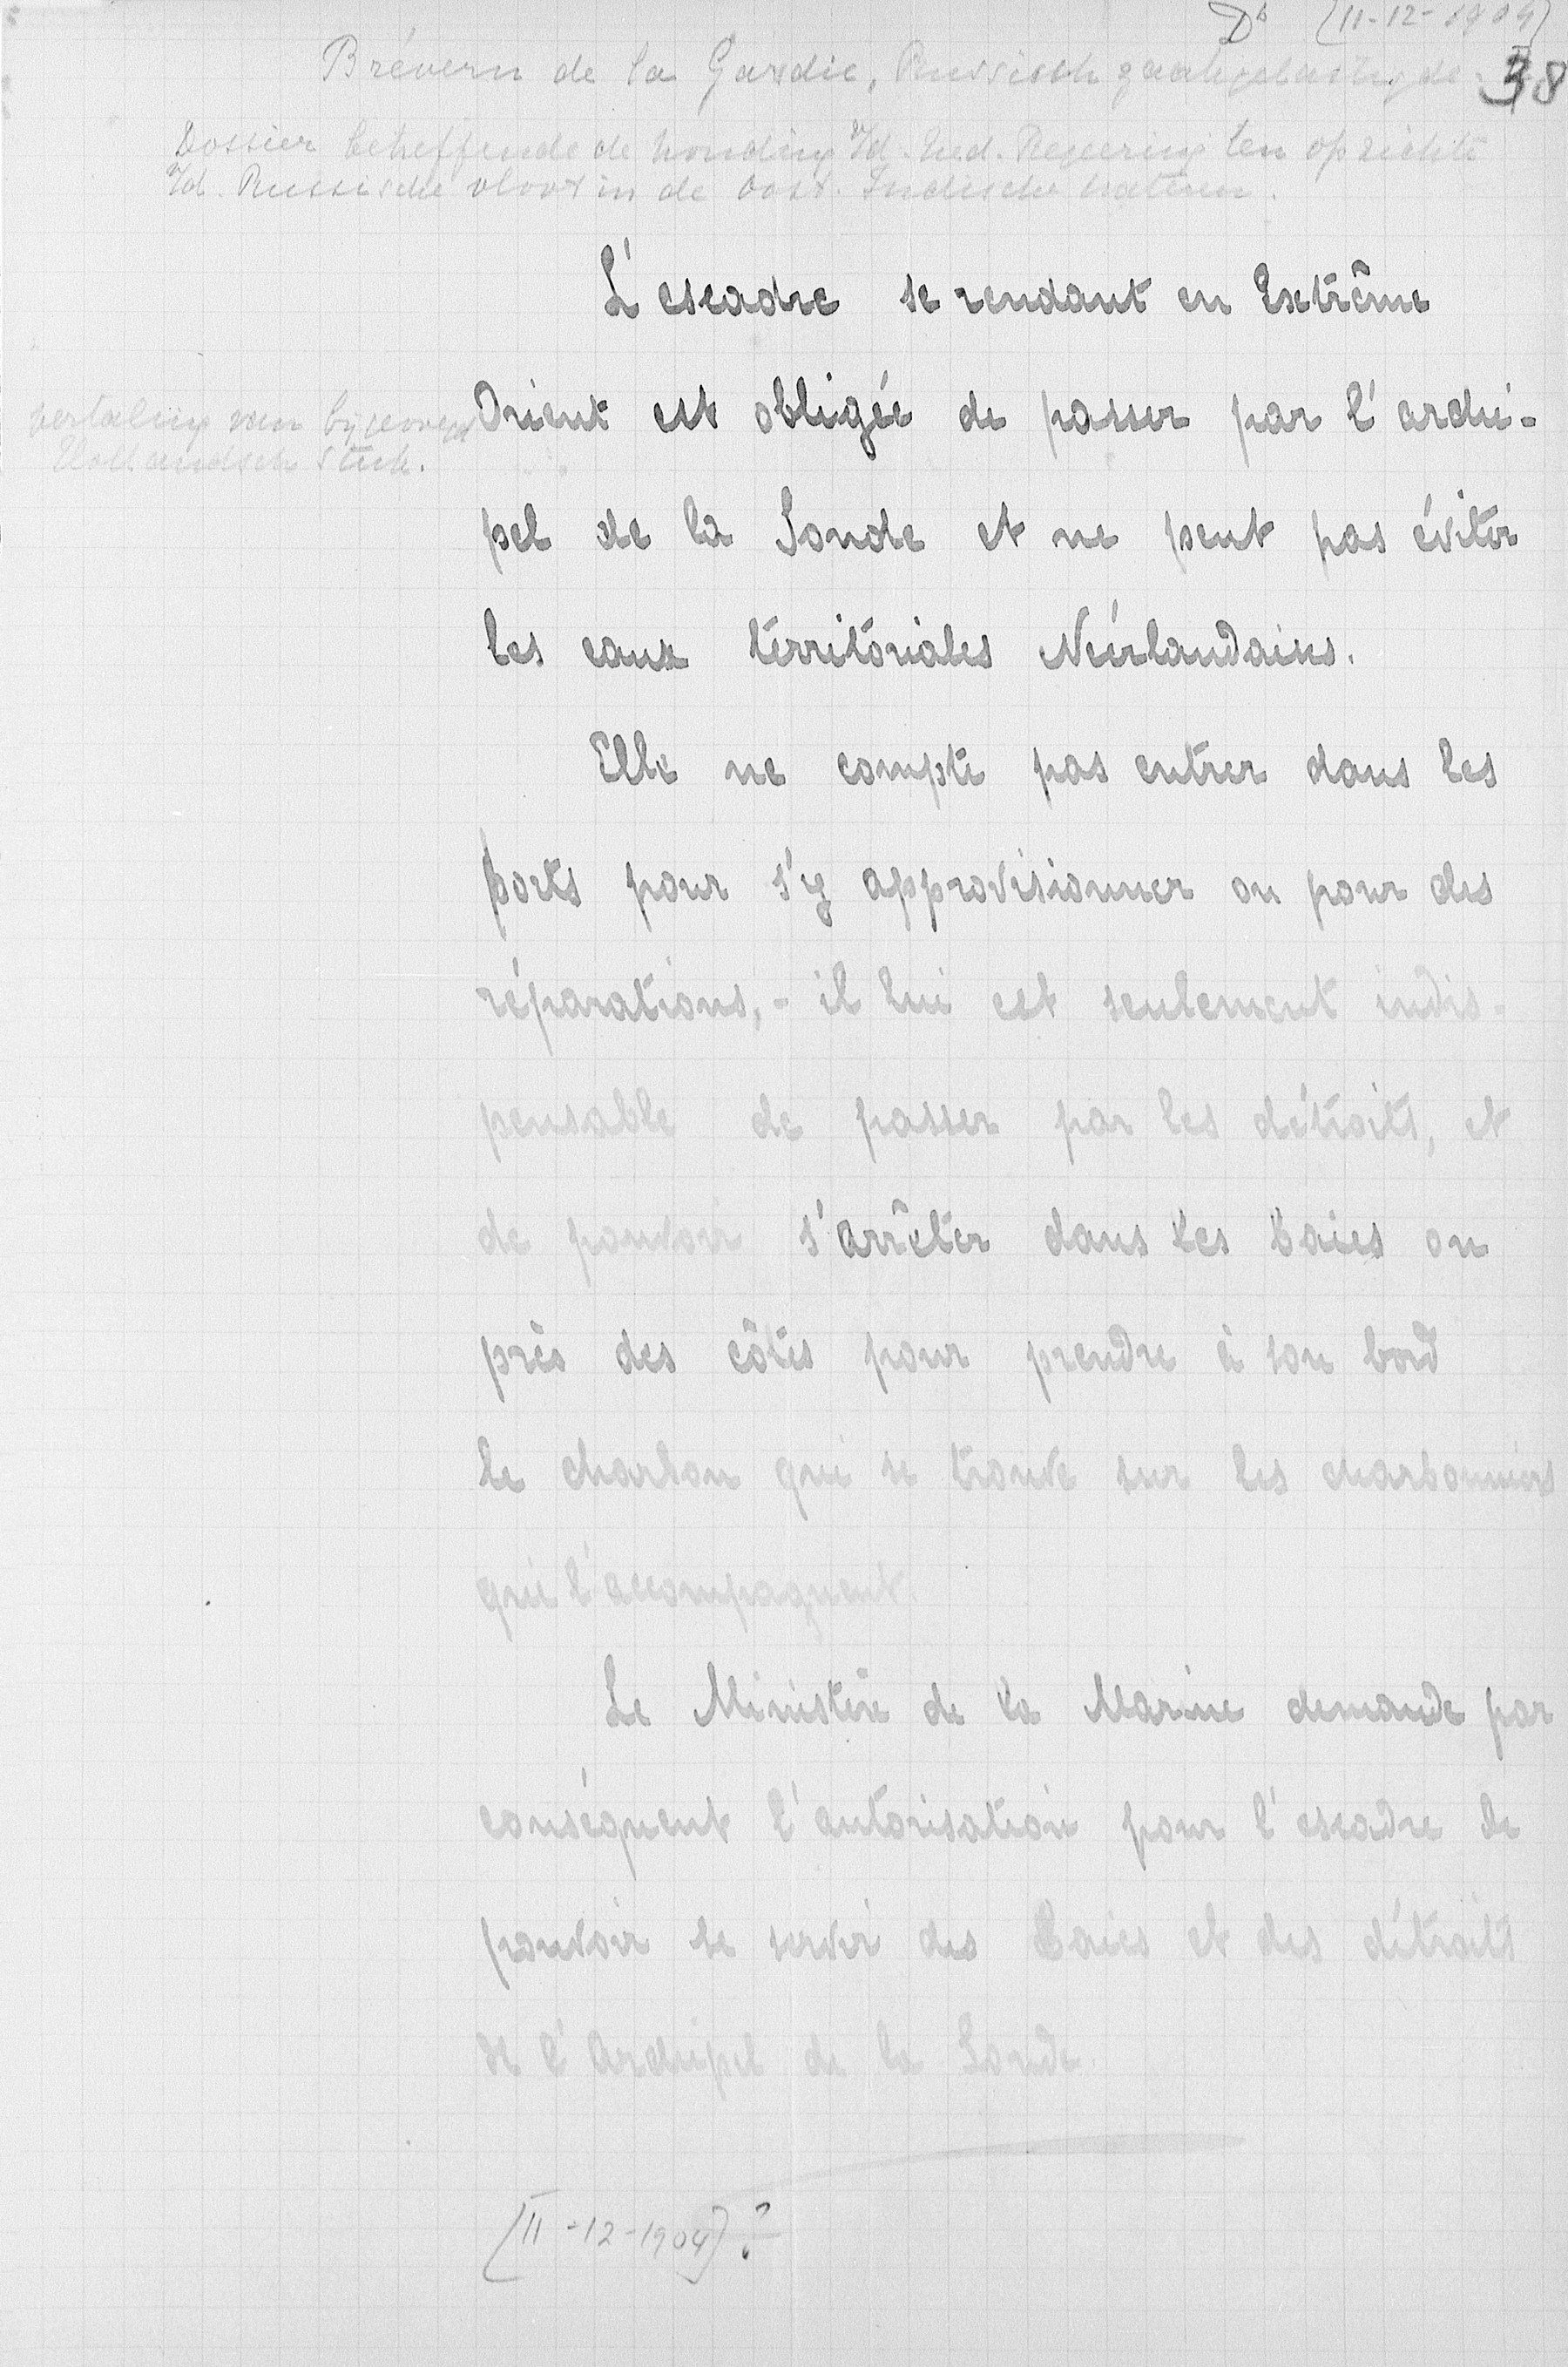 Db [11-12-1904]
Brévern de la Gardie, Russisch zaakgelastigde. 38
Dossier betreffende de houding v/d. Ned. Regeering ten opzichte
v/d. Russische vloot in de Oost-Indische wateren.
L'escadre se rendant en Extrême
vertaling van bijgevoegd
Hollandsch stuk.
Orient est obligée de passer par l'archi-
pel de la Sonde et ne peut pas éviter
les eaux térritoriales Néérlandaises.
Elle ne compte pas entrer dans les
ports pour s'y approvisionner ou pour des
réparations, - il lui est seulement indis-
pensable de passer par les détroits, et
de pouvoir s'arrêter dans les baies ou
près des côtes pour prendre à son bord
le charbon qui se trouve sur les charbonniers
qui l'accompagnent.
Le Ministère de la Marine demande par
conséquent l'autorisation pour l'escadre de
pouvoir se servir des Baies et des détroits
de l'Archipel de la Sonde.
[11-12-1904]?